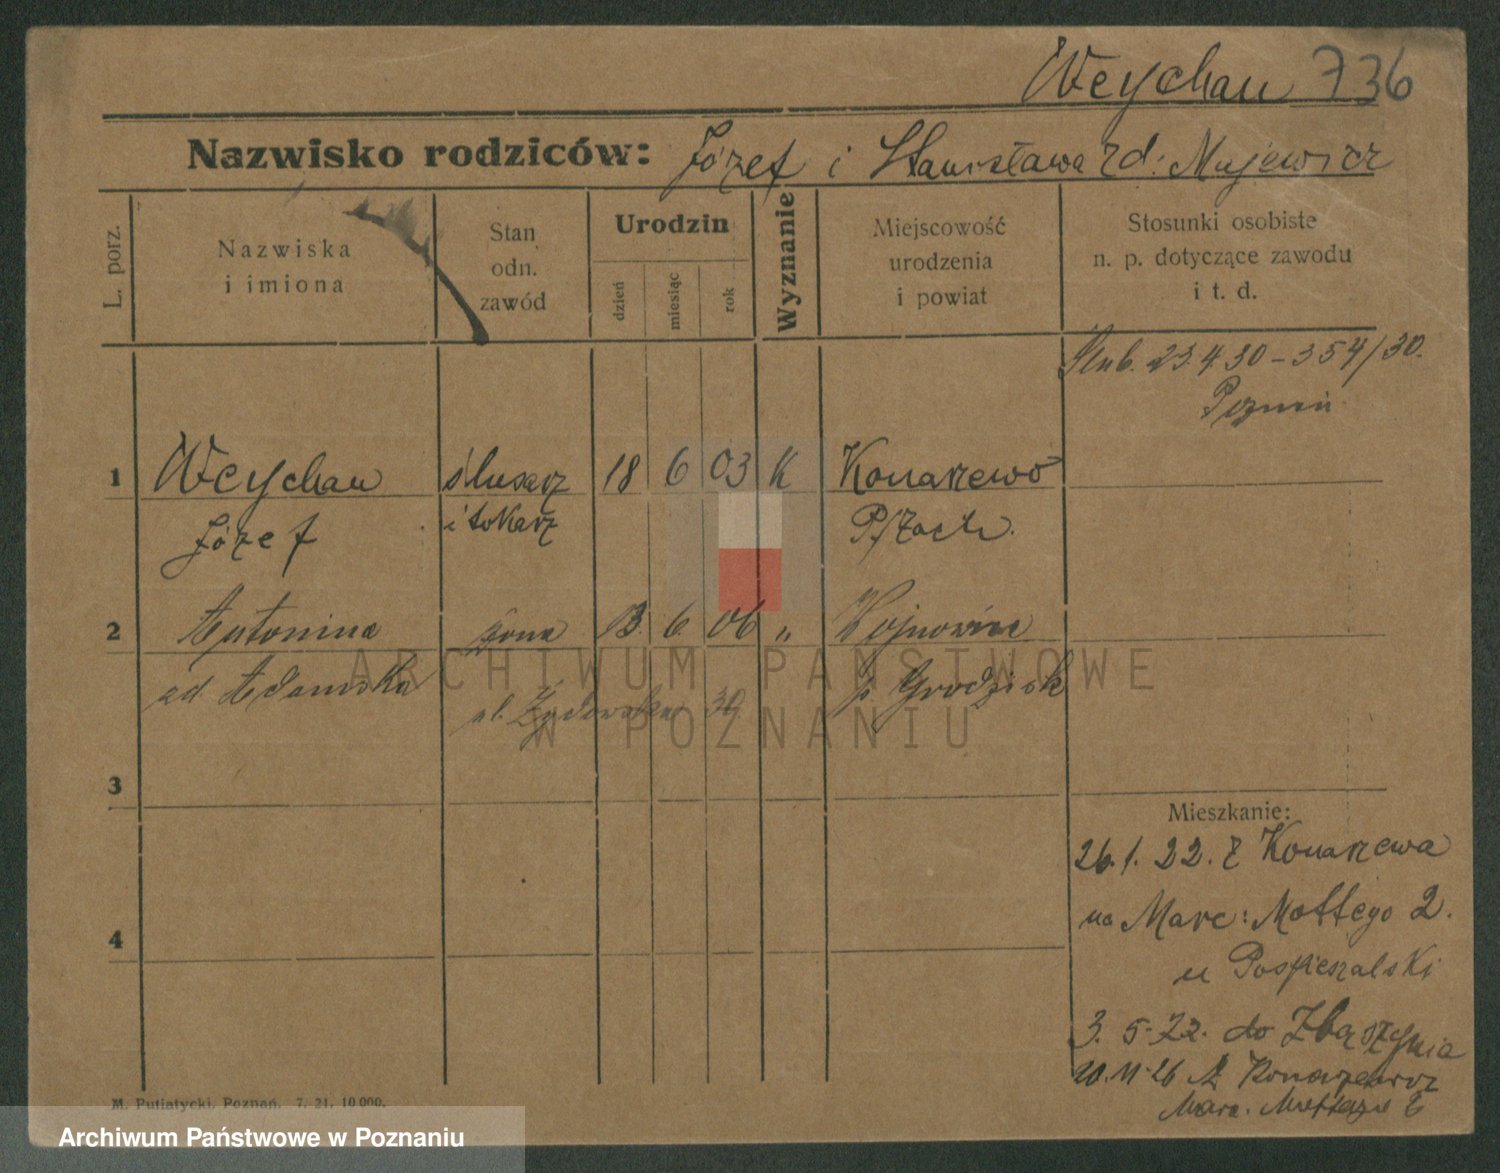 Weychan 736
Nazwisko rodziców: Józef i Stanisława rd: Majewicz
L. porz.
Nazwiska
i imiona
Stan
odn.
zawód
Urodzin
dzień
miesiąc
rok
Wyznanie
Miejscowość
urodzenia
i powiat
Stosunki osobiste
n. p. dotyczące zawodu
i t. d.
Ślub. 23.4.30 - 354/30.
Poznań
1 Weychan ślusarz 18 6 03 K Konarzewo
Józef i tokarz P/Zach.
2 Antonina żona 13. 6. 06 „ Wojnowice
ul. Żydowska 30 p Grodzisk
3
Mieszkanie:
26.1.22. z Konarzewa
na Marc: Mottego 2.
u Pospieszalski
4
3. 5-22. do Zbąszynia
20.11-26 z
Marc. Mottego
M. Putiatycki, Poznań. 7. 21. 10 000.
ARCHIWUM PAŃSTWOWE
W POZNANIU
Archiwum Państwowe w Poznaniu